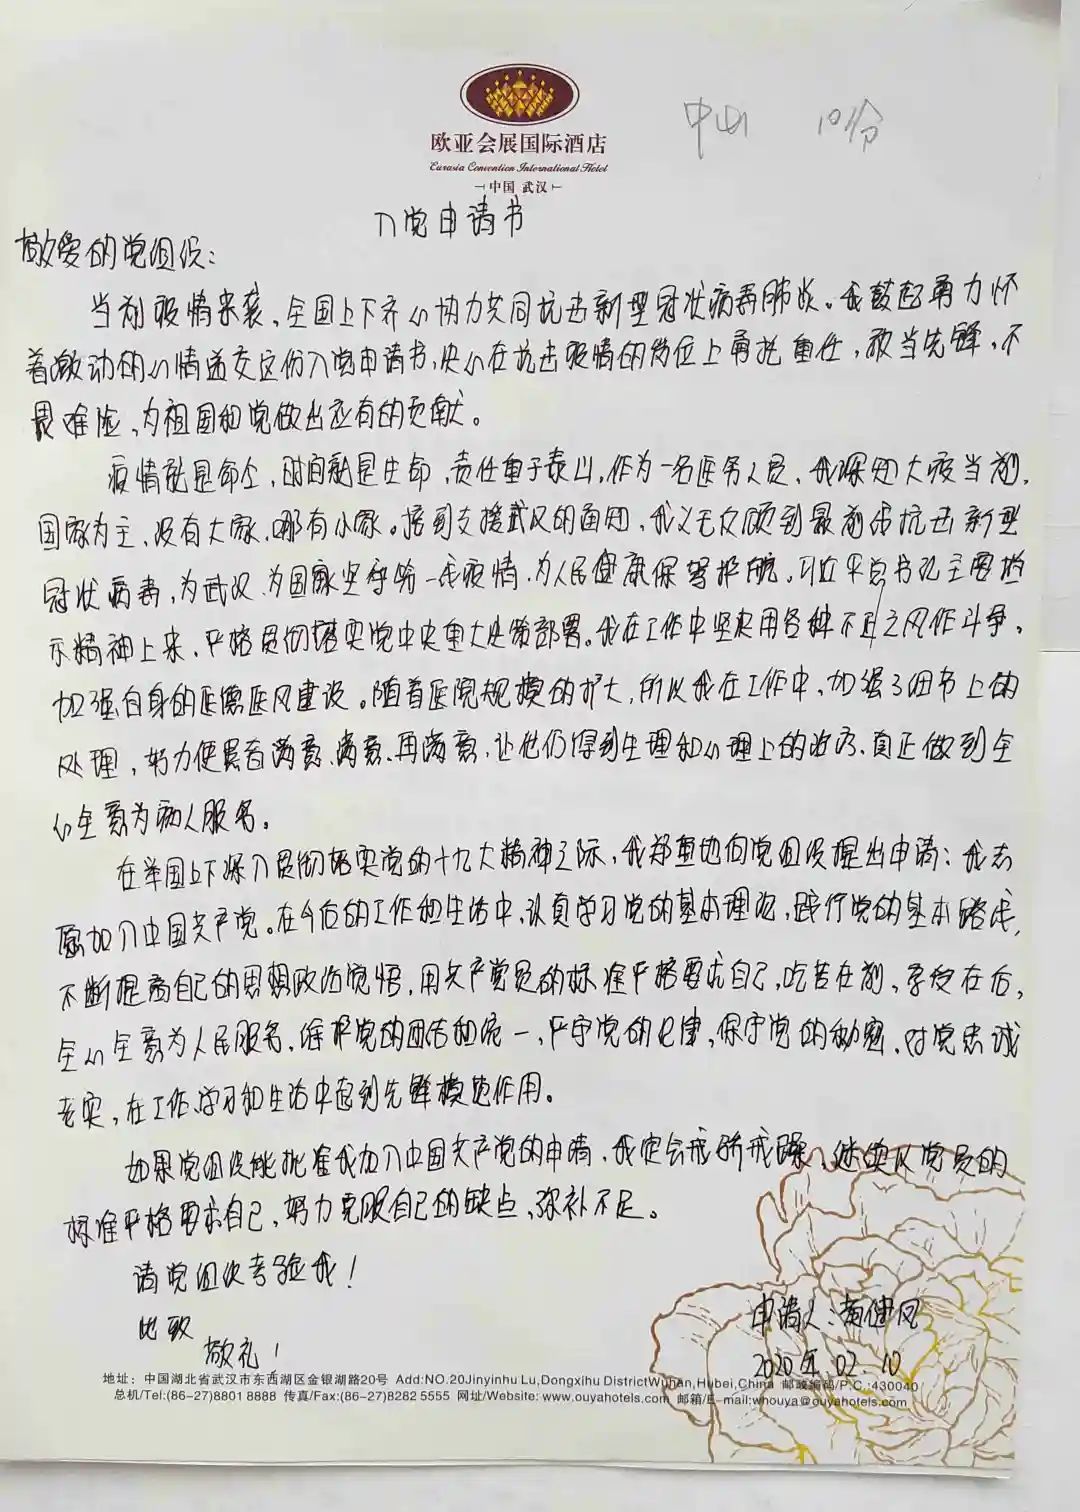 中山 10份
欧亚会展国际酒店
Eurasia Convention International Hotel
中国 武汉
入党申请书
敬爱的党组织:
当前疫情来袭、全国上下齐心协力共同抗击新型冠状病毒肺炎。我鼓起勇力怀
着激动的心情递交这份入党申请书,决心在抗击疫情的岗位上勇挑重任,敢当先锋、不
畏难险、为祖国和党做出应有的贡献。
疫情就是命令,时间就是生命,责任重于泰山,作为一名医务人员、我深知大疫当前,
国家为主、没有大家、哪有小家。接到支援武汉的通知、我义无反顾到最前线抗击新型
冠状病毒,为武汉、为国家坚守第一线疫情、为人民健康保驾护航。习近平总书记主要指
示精神上来、严格贯彻落实党中央重大决策部署。我在工作中坚决用各种不正之风作斗争。
加强自身的医德医风建设。随着医院规模的扩大,所以我在工作中、加强了细节上的
处理,努力使患者满意、满意、再满意,让他们得到生理和心理上的治疗、真正做到全
心全意为病人服务。
在举国上下深入贯彻落实党的十九大精神之际、我郑重地向党组织提出申请:我志
愿加入中国共产党。在今后的工作和生活中、认真学习党的基本理论,践行党的基本路线,
不断提高自己的思想政治觉悟,用共产党员的标准严格要求自己,吃苦在前、享受在后,
全心全意为人民服务、维护党的团结和统一、严守党的纪律,保守党的秘密、对党忠诚
老实,在工作、学习和生活中起到先锋模范作用。
如果党组织能批准我加入中国共产党的申请,我定会戒骄戒躁、继续以党员的
标准严格要求自己,努力克服自己的缺点、弥补不足。
请党组织考验我!
此致
敬礼!
申请人:黄健凤
2020年.02.10
地址: 中国湖北省武汉市东西湖区金银湖路20号 Add:NO.20Jinyinhu Lu,Dongxihu DistrictWuhan,Hubei,China 邮政编码/P.C.:430040
总机/Tel:(86-27)8801 8888 传真/Fax:(86-27)8282 5555 网址/Website: www.ouyahotels.com 邮箱/E-mail:whouya@ouyahotels.com